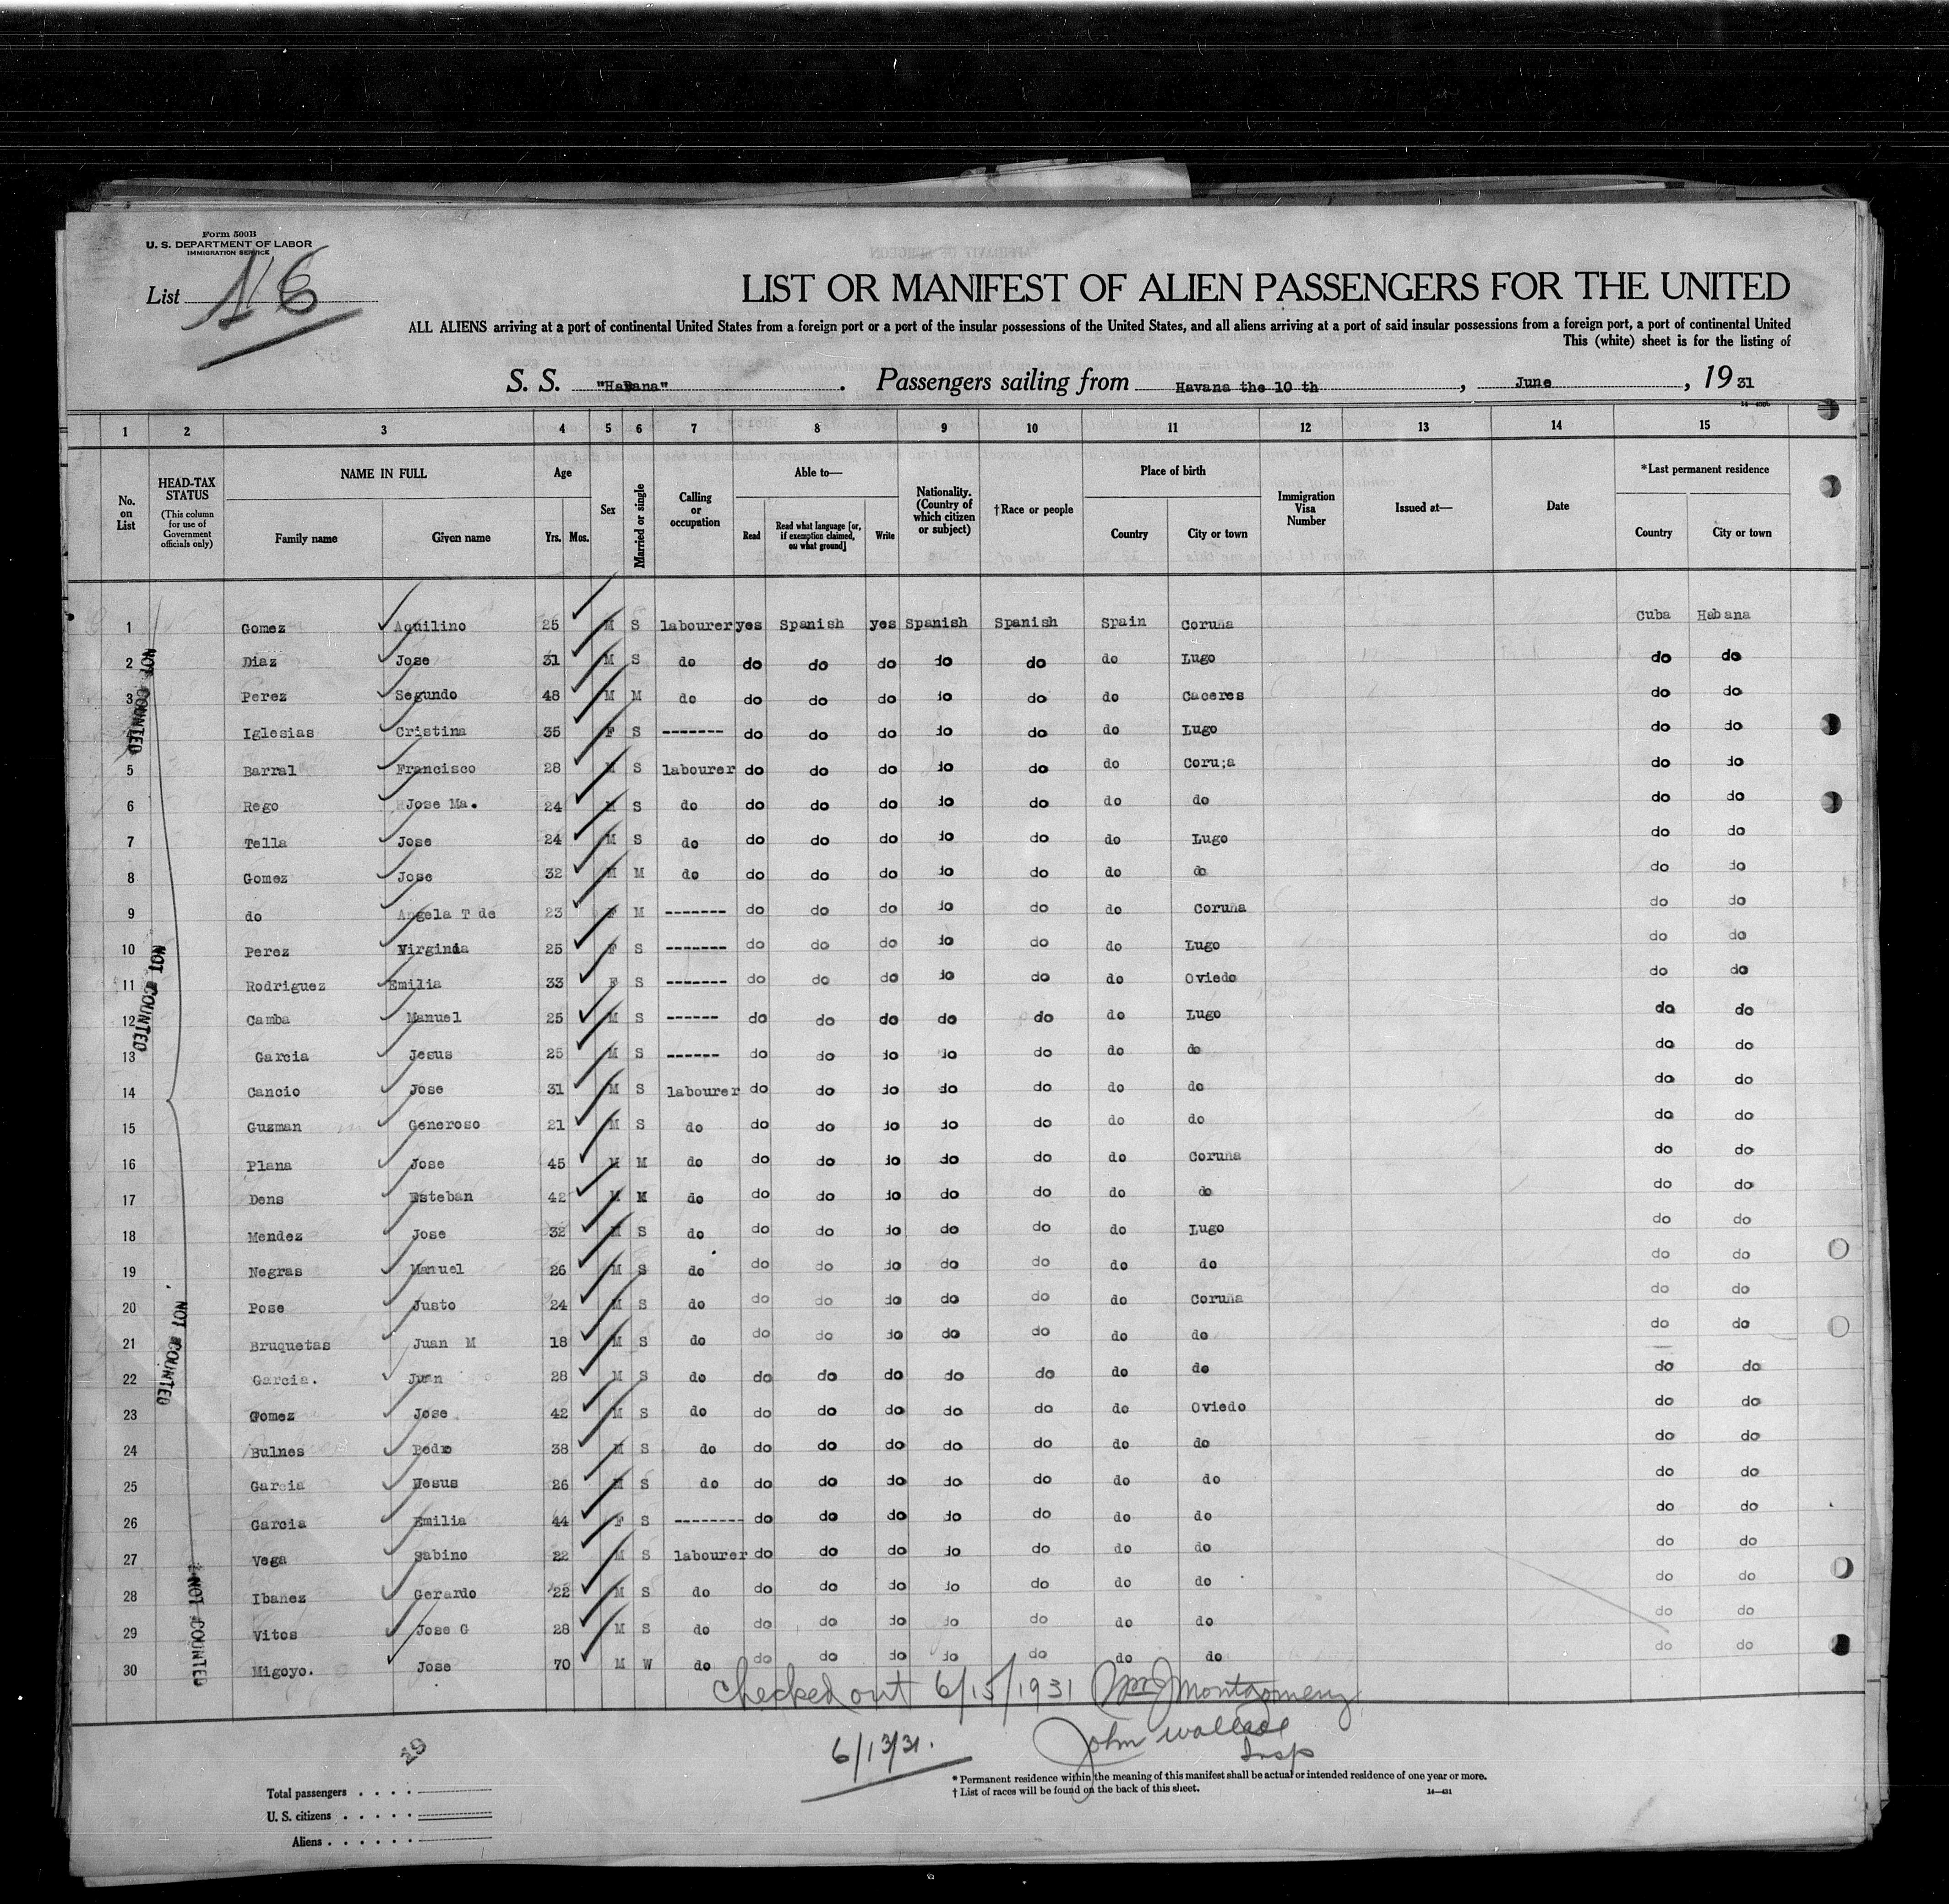 Form 500B
U. S. DEPARTMENT OF LABOR
IMMIGRATION SERVICE
List 16
LIST OR MANIFEST OF ALIEN PASSENGERS FOR THE UNITED
ALL ALIENS arriving at a port of continental United States from a foreign port or a port of the insular possessions of the United States, and all aliens arriving at a port of said insular possessions from a foreign port, a port of continental United
This (white) sheet is for the listing of
S. S. "Habana" . Passengers sailing from Havana the 10 th , June , 19 31
1 2 3 4 5 6 7 8 9 10 11 12 13 14 15
No. on List HEAD-TAX STATUS (This column for use of Government officials only) NAME IN FULL Family name Given name Age Yrs. Mos. Sex Married or single Calling or occupation Able to— Read Read what language [or, if exemption claimed, on what ground] Write Nationality. (Country of which citizen or subject) †Race or people Place of birth Country City or town Immigration Visa Number Issued at— Date *Last permanent residence Country City or town
1 Gomez Aquilino 25 M S labourer yes Spanish yes Spanish Spanish Spain Coruña Cuba Habana
2 Diaz Jose 31 M S do do do do do do do Lugo do do
3 Perez Segundo 48 M M do do do do do do do Caceres do do
4 Iglesias Cristina 35 F S ------- do do do do do do Lugo do do
5 Barral Francisco 28 M S labourer do do do do do do Coru;a do do
6 Rego Jose Ma. 24 M S do do do do do do do do do do
7 Tella Jose 24 M S do do do do do do do Lugo do do
8 Gomez Jose 32 M M do do do do do do do do do do
9 do Angela T de 23 F M ------- do do do do do do Coruña do do
10 Perez Virginia 25 F S ------- do do do do do do Lugo do do
11 Rodriguez Emilia 33 F S ------- do do do do do do Oviedo do do
12 Camba Manuel 25 M S ------ do do do do do do Lugo do do
13 Garcia Jesus 25 M S ------ do do do do do do do do do
14 Cancio Jose 31 M S labourer do do do do do do do do do
15 Guzman Generoso 21 M S do do do do do do do do do do
16 Plana Jose 45 M M do do do do do do do Coruña do do
17 Dens Esteban 42 M M do do do do do do do do do do
18 Mendez Jose 32 M S do do do do do do do Lugo do do
19 Negras Manuel 26 M S do do do do do do do do do do
20 Pose Justo 24 M S do do do do do do do Coruña do do
21 Bruquetas Juan M 18 M S do do do do do do do do do do
22 Garcia. Juan 28 M S do do do do do do do do do do
23 Gomez Jose 42 M S do do do do do do do Oviedo do do
24 Bulnes Pedro 38 M S do do do do do do do do do do
25 Garcia Jesus 26 M S do do do do do do do do do do
26 Garcia Emilia 44 F S -------- do do do do do do do do do
27 Vega Sabino 22 M S labourer do do do do do do do do do
28 Ibanez Gerardo 22 M S do do do do do do do do do do
29 Vitos Jose G 28 M S do do do do do do do do do do
30 Migoyo. Jose 70 M W do do do do do do do do do do
NOT COUNTED
NOT COUNTED
NOT COUNTED
NOT COUNTED
Checked out 6/15/1931 Wm J Montgomery
6/13/31. John Wallace
Insp
29
* Permanent residence within the meaning of this manifest shall be actual or intended residence of one year or more.
† List of races will be found on the back of this sheet. 14—431
Total passengers . . . .
U. S. citizens . . . . .
Aliens . . . . . .